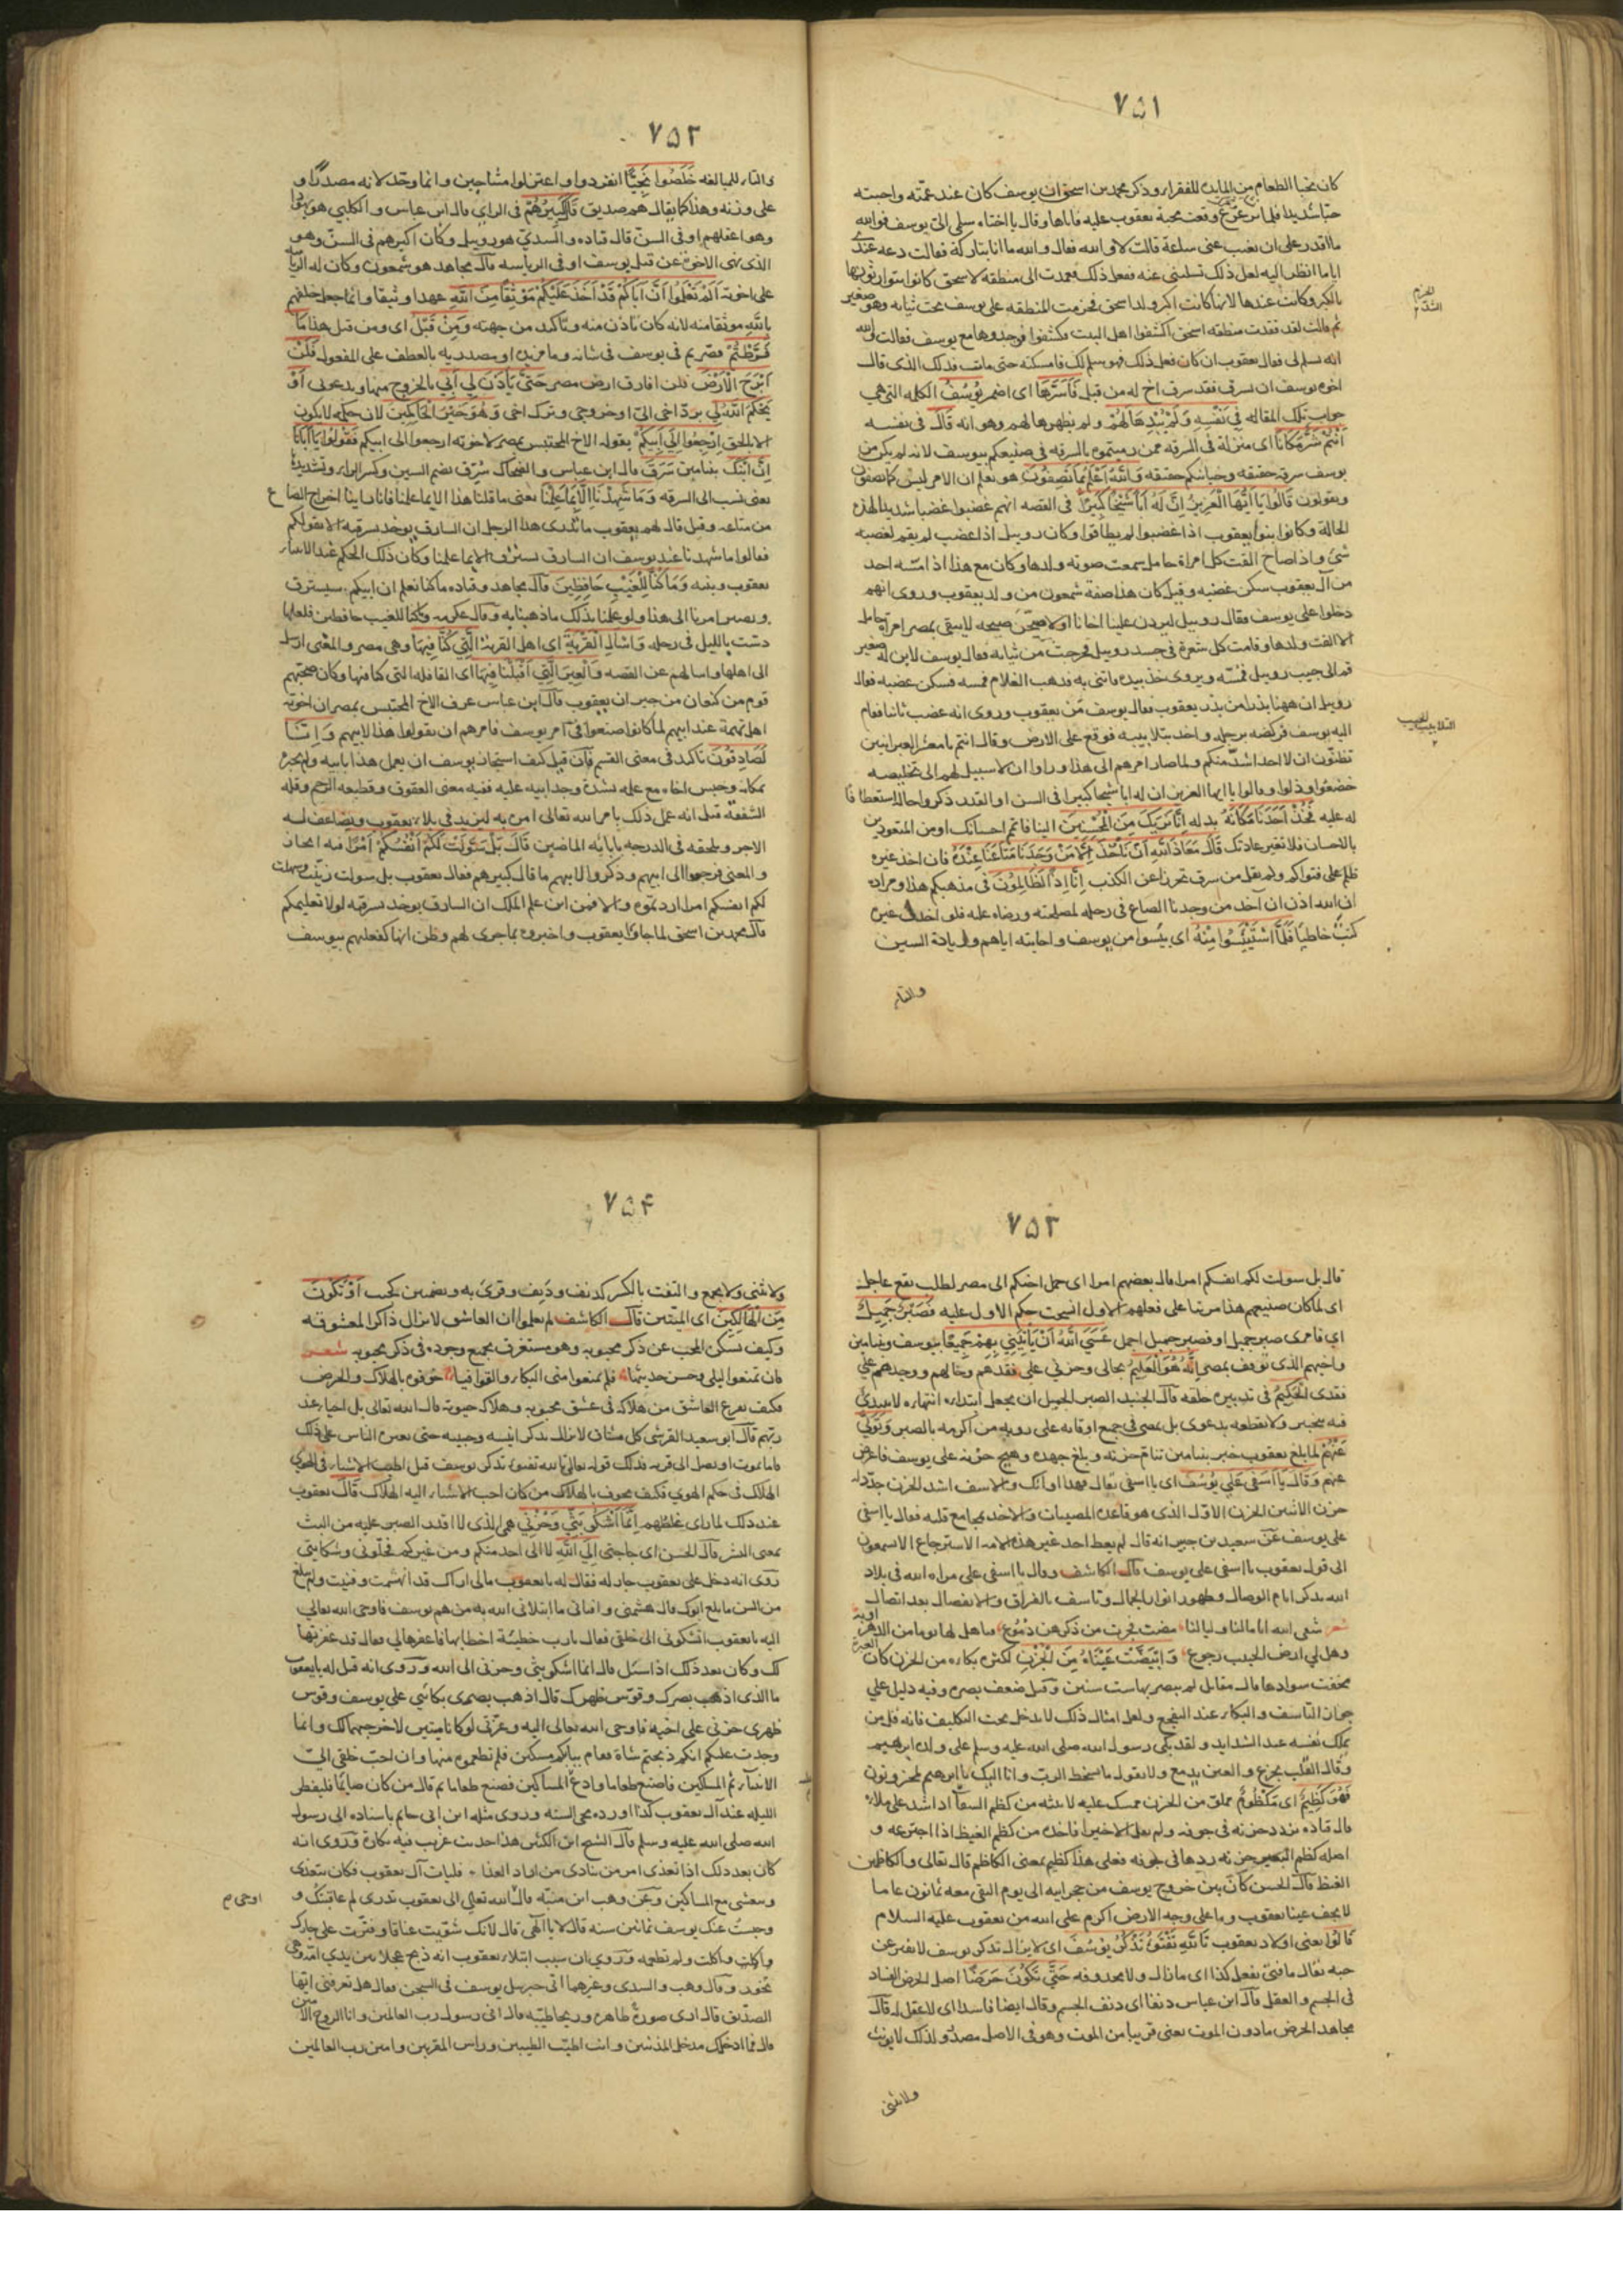 ٧٥١
كان يخبا الطعام من المايده للفقراء وذكر محمد بن اسحق ان يوسف كان عند عمّته واحبته
حبّا شديدا فلما ترعرع وقعت محبة يعقوب عليه فاتاها وقال يا اختاه سلمي اليّ يوسف فوالله
ما اقدر على ان يغيب عني ساعة قالت لا والله فقال والله ما انا بتاركه فقالت دعه عندي
اياما انظر اليه لعل ذلك تسليني عنه ففعل ذلك فعمدت الى منطقة لاسحق كانوا يتوارثونها
بالكبر وكانت عندها لانها كانت اكبر ولد اسحق فحزمت المنطقه على يوسف تحت ثيابه وهو صغير
ثم قالت لقد فقدت منطقه اسحق اكشفوا اهل البيت فكشفوا فوجدوها مع يوسف فقالت والله
انه لسلم لي فقال يعقوب ان كان فعل ذلك فهو سلم لك فامسكته حتى ماتت فذلك الذي قال
اخوه يوسف ان يسرق فقد سرق اخ له من قبل فَاَسَرَّهَا اى اضمر يُوسُفُ الكلمه التي هي
جواب تلك المقاله فِي نَفْسِهِ وَلَمْ يُبْدِهَا لَهُمْ ولم يظهرها لهم وهو انه قَالَ في نفسه
اَنْتُمْ شَرٌّ مَكَانًا اى منزلة في السرقه ممن رميتموه بالسرقه في صنيعكم بيوسف لانه لم يكن من
يوسف سرقة حقيقه وخيانتكم حقيقه وَاللهُ اَعْلَمُ بِمَا تَصِفُونَ هو يعلم ان الامر ليس كما تصفون
وتقولون قَالُوا يَا اَيُّهَا الْعَزِيزُ اِنَّ لَهُ اَبًا شَيْخًا كَبِيرًا في القصه انهم غضبوا غضبا شديدا لهذه
الحالة وكانوا بنو يعقوب اذا غضبوا لم يطاقوا وكان روبيل اذا غضب لم يقم لغضبه
شئ واذا صاح القت كل امراة حامل سمعت صوته ولدها وكان مع هذا اذا مسّه احد
من آل يعقوب سكن غضبه وقيل كان هذا صفة شمعون من ولد يعقوب وروى انهم
دخلوا على يوسف فقال روبيل ليردن علينا اخانا او لاصيحنّ صيحه لا يبقى بمصر امراة حامل
الا القت ولدها وقامت كل شعرة في جسد روبيل فخرجت من ثيابه فقال يوسف لابن له صغير
قم الى جنب روبيل فمسّه ويروى خذ بيده فاتني به فذهب الغلام فمسه فسكن غضبه فقال
روبيل ان ههنا بذرا من بذر يعقوب فقال يوسف مَن يعقوب وروى انه غضب ثانيا فقام
اليه يوسف فركضه برجله واخذ بتلابيبه فوقع على الارض وقال انتم يا معشر العبرانيين
تظنّون ان لا احد اشدّ منكم ولما صار امرهم الى هذا وراوا ان لا سبيل لهم الى تخليصه
خضعوا وذلوا وقالوا يا ايها العزيز ان له ابا شيخا كبيرا في السن او القدر ذكروا حاله استعطافا
له عليه فَخُذْ اَحَدَنَا مَكَانَهُ بدله اِنَّا نَرٰيكَ مِنَ الْمُحْسِنِينَ الينا فاتم احسانك او من المتعودين
بالاحسان فلا تغير عادتك قَالَ مَعَاذَ اللهِ اَنْ نَأْخُذَ اِلَّا مَنْ وَجَدْنَا مَتَاعَنَا عِنْدَهُ فان اخذ غيره
ظلم على فتواكم ولم يقل من سرق تحرزا عن الكذب اِنَّا اِذًا لَظَالِمُونَ في مذهبكم هذا ومراده
ان الله اذن ان آخذ من وجدنا الصاع في رحله لمصلحته ورضاه عليه فلو اخذت غيره
كنتُ خاطيا فَلَمَّا اسْتَيْئَسُوا مِنْهُ اى يئسوا من يوسف واجابته اياهم وزيادة السين
والتاء
٧٥٢
والتاء للمبالغه خَلَصُوا نَجِيًّا انفردوا واعتزلوا متناجين وانما وحّد لانه مصدر او
على وزنه وهذا كما يقال هم صديق قَالَ كَبِيرُهُمْ في الراي قال ابن عباس والكلبي هو يهوذا
وهو اعقلهم او في السنّ قال قتاده والسديّ هو روبيل وكان اكبرهم في السنّ وهو
الذي نهى الاخوة عن قتل يوسف او في الرياسه قال مجاهد هو شمعون وكان له الرياسة
على اخوته اَلَمْ تَعْلَمُوا اَنَّ اَبَاكُمْ قَدْ اَخَذَ عَلَيْكُمْ مَوْثِقًا مِنَ اللهِ عهدا وثيقا وانما جعل حلفهم
بالله موثقا منه لانه كان باذن منه وتاكيد من جهته وَمِنْ قَبْلُ اى ومن قبل هذا مَا
فَرَّطْتُمْ قصّرتم في يوسف في شانه وما مزيده او مصدريه بالعطف على المفعول فَلَنْ
اَبْرَحَ الْاَرْضَ فلن افارق ارض مصر حَتَّى يَأْذَنَ لِي اَبِي بالخروج منها ويدعوني اَوْ
يَحْكُمَ اللهُ لِي بردّ اخي اليّ او خروجي وترك اخي وَهُوَ خَيْرُ الْحَاكِمِينَ لان حكمه لا يكون
الا بالحق اِرْجِعُوا اِلَى اَبِيكُمْ يقوله الاخ المحتبس بمصر لاخوته ارجعوا الى ابيكم فَقُولُوا يَا اَبَانَا
اِنَّ ابْنَكَ بنيامين سَرَقَ قال ابن عباس والضحاك سُرّق بضم السين وكسر الراء وتشديدها
يعني نسب الى السرقه وَمَا شَهِدْنَا اِلَّا بِمَا عَلِمْنَا يعني ما قلنا هذا الا بما علمنا فانا راينا اخراج الصاع
من متاعه وقيل قال لهم يعقوب ما يدرى هذا الرجل ان السارق يوخذ بسرقته الا بقولكم
فقالوا ما شهدنا عند يوسف ان السارق يسترق الا بما علمنا وكان ذلك الحكم عند الانبياء
يعقوب وبنيه وَمَا كُنَّا لِلْغَيْبِ حَافِظِينَ قال مجاهد وقتاده ما كنا نعلم ان ابنكم سيسترق
ويصير امرنا الى هذا ولو علمنا بذلك ما ذهبنا به وقال عكرمه وما كنا للغيب حافظين فلعلها
دسّت بالليل في رحله وَاسْأَلِ الْقَرْيَةَ اى اهل القرية الَّتِي كُنَّا فِيهَا وهي مصر والمعنى ارسل
الى اهلها واسالهم عن القصه وَالْعِيرَ الَّتِي اَقْبَلْنَا فِيهَا اى القافله التي كنا فيها وكان صحبهم
قوم من كنعان من جيران يعقوب قال ابن عباس عرف الاخ المحتبس بمصر ان اخوته
اهل تهمة عند ابيهم لما كانوا صنعوا في امر يوسف فامرهم ان يقولوا هذا لابيهم وَاِنَّا
لَصَادِقُونَ تاكيد في معنى القسم فان قيل كيف استجاز يوسف ان يعمل هذا بابيه ولم يخبره
بمكانه وحبس اخاه مع علمه بشدة وجد ابيه عليه ففيه معنى العقوق وقطيعه الرحم وقله
الشفقه قيل انه عمل ذلك بامر الله تعالى امره به ليزيد في بلاء يعقوب ويضاعف له
الاجر ويلحقه في الدرجه بابائه الماضين قَالَ بَلْ سَوَّلَتْ لَكُمْ اَنْفُسُكُمْ اَمْرًا فيه ايجاز
والمعنى فرجعوا الى ابيهم وذكروا لابيهم ما قال كبيرهم فقال يعقوب بل سولت زيّنت وسهلت
لكم انفسكم امرا اردتموه والا فمن اين علم الملك ان السارق يوخذ بسرقته لولا تعليمكم
قال محمد بن اسحق لما جاؤا يعقوب واخبروه بما جرى لهم وظن انها كفعلهم بيوسف
٧٥٣
قال بل سولت لكم انفسكم امرا قال بعضهم امرا اى حمل اخيكم الى مصر لطلب نفع عاجل
اى لما كان صنيعهم هذا مرتبا على فعلهم الاول انسحب حكم الاول عليه فَصَبْرٌ جَمِيلٌ
اى فامرى صبر جميل او فصبر جميل اجمل عَسَى اللهُ اَنْ يَأْتِيَنِي بِهِمْ جَمِيعًا بيوسف وبنيامين
واخيهم الذي توقف بمصر اِنَّهُ هُوَ الْعَلِيمُ بحالي وحزني على فقدهم وحالهم ووجدهم علي
فقدى الْحَكِيمُ في تدبير خلقه قال الجنيد الصبر الجميل ان يجعل ابتداءه انتهاءه لا يبتدئ
فيه بتحير ولا يقطعه بدعوى بل يمضي في جميع اوقاته على رويه من اكرمه بالصبر وَتَوَلَّى
عَنْهُمْ لما بلغ يعقوب خبر بنيامين تتام حزنه وبلغ جهده وهيج حزنه على يوسف فاعرض
عنهم وَقَالَ يَا اَسَفَى عَلَى يُوسُفَ اى يا اسفي تعال فهذا اوانك والاسف اشد الحزن جدّد له
حزن الاثنين الحزن الاول الذى هو قاعدة المصيبات والاخذ بمجامع قلبه فقال يا اسفى
على يوسف عَن سعيد بن جبير انه قال لم يعط احد غير هذه الامه الاسترجاع الا تسمعون
الى قول يعقوب يا اسفى على يوسف قال الكاشف وقال يا اسفى على مراه الله في بلاد
الله بذكر ايام الوصال وظهور انوار الجمال وتاسف بالفراق والانفصال بعد اتصال
شعر سقى الله اياما لنا ولياليا مضت فجرت من ذكرهن دُمُوع فيا هل لها يوما من الدهر اوبة
وهل لي الى ارض الحبيب رجوع وَابْيَضَّتْ عَيْنَاهُ مِنَ الْحُزْنِ لكثرة بكاءه من الحزن كان العبرة
محقت سوادها قال مقاتل لم يبصر بهما ست سنين وقيل ضعف بصره وفيه دليل على
جواز التاسف والبكاء عند التفجع ولعل امثال ذلك لا يدخل تحت التكليف فانه قل من
يملك نفسه عند الشدايد ولقد بكى رسول الله صلى الله عليه وسلم على ولده ابرهيم
وقال القلب يجزع والعين يدمع ولا نقول ما يسخط الربّ وانا عليك يا ابرهيم لمحزونون
فَهُوَ كَظِيمٌ اى مكظوم مملوّ من الحزن ممسك عليه لا يبثه من كظم السقآء اذا شد على ملاءه
قال قتاده يردد حزنه في جوفه ولم يقل الا خيرا فاخذ من كظم الغيظ اذا اجترعه و
اصله كظم البعير جرته ردها في جوفه فعلى هذا كظيم بمعنى الكاظم قال تعالى والكاظمين
الغيظ قال الحسن كان بين خروج يوسف من حجر ابيه الى يوم التقى معه ثمانون عاما
لا يجف عينا يعقوب وما على وجه الارض اكرم على الله من يعقوب عليه السلام
قَالُوا يعني اولاد يعقوب تَاللهِ تَفْتَؤُ تَذْكُرُ يُوسُفَ اى لا يزال تذكر يوسف لا تفتر عن
حبه يقال ما فتئ يفعل كذا اى ما زال ولا محذوفه حَتَّى تَكُونَ حَرَضًا اصل الحرض الفساد
في الجسم والعقل قال ابن عباس دنفا اى دنف الجسم وقال ايضا فاسدا اى لا عقل له قال
مجاهد الحرض ما دون الموت يعني قريبا من الموت وهو في الاصل مصدر ولذلك لا يؤنث
ولا يثنى
٧٥٤
ولا يثنى ولا يجمع والنعت بالكسر كدنف ودَنِف وقرئ به وبضمتين كجنب اَوْ تَكُونَ
مِنَ الْهَالِكِينَ اى الميّتين قال الكاشف لم يعلموا ان العاشق لا يزال ذاكرا لمعشوقه
وكيف يسكن المحب عن ذكر محبوبه وهو مستغرق بجميع وجوده في ذكر محبوبه شعر
فان تمنعوا ليلى وحسن حديثها فلم تمنعوا منى البكاء والقوافيا خوّفوه بالهلاك والحرض
فكيف يفزع العاشق من هلاكه في عشق محبوبه وهلاكه حيوته قال الله تعالى بل احياء عند
ربّهم قال ابو سعيد القرشي كل مشتاق لا يزال يذكر انيسه وحبيبه حتى يعيره الناس على ذلك
فاما يموت او يصل الى قربه فذلك قوله تعالى تالله تفتؤ تذكر يوسف قيل اطيب الاشياء في الهوى
الهلاك في حكم الهوى فكيف يخوف بالهلاك من كان احب الاشياء اليه الهلاك قَالَ يعقوب
عند ذلك لما راى غلظتهم اِنَّمَا اَشْكُو بَثِّي وَحُزْنِي هي الذي لا اقدر الصبر عليه من البث
بمعنى النشر قال الحسن اى حاجتي اِلَى اللهِ لا الى احد منكم ومن غيركم فخلّوني وشكايتي
روى انه دخل على يعقوب جار له فقال له يا يعقوب مالي اراك قد انهشمت وفنيت ولم تبلغ
من السن ما بلغ ابوك قال هشمني وافناني ما ابتلاني الله به من هم يوسف فاوحى الله تعالي
اليه يا يعقوب اتشكوني الى خلقي فقال يا رب خطيئة اخطاتها فاغفرها لي فقال قد غفرتها
لك وكان بعد ذلك اذا سئل قال انما اشكو بثي وحزني الى الله وروى انه قيل له يا يعقوب
ما الذى اذهب بصرك وقوّس ظهرك قال اذهب بصرى بكائي على يوسف وقوس
ظهرى حزني على اخيه فاوحى الله تعالى اليه وعزّتي لو كانا ميتين لاخرجتهما لك وانما
وجدت عليكم انكم ذبحتم شاة فقام ببابكم مسكين فلم تطعموه منها وان احبّ خلقي اليّ
الانبياء ثم المساكين فاصنع طعاما وادع المساكين فصنع طعاما ثم قال من كان صائما فليفطر
الليله عند آل يعقوب كذا اورده محي السنه وروى مثله ابن ابي حاتم باسناده الى رسول
الله صلى الله عليه وسلم قال الشيخ ابن الكثير هذا حديث غريب فيه نكارة وروى انه
كان بعد ذلك اذا تغذى امر من ينادى من اراد الغذاء فليات آل يعقوب فكان يتغذى
ويتعشى مع المساكين وعَن وهب ابن منبّه قال الله تعالي الى يعقوب تدرى لم عاقبتك و
اوحى
وحبستُ عنك يوسف ثمانين سنه قال لا يا الهي قال لانك شوّيت عناقا وقترّت على جارك
واكلت واكلت ولم تطعمه وروي ان سبب ابتلاء يعقوب انه ذبح عجلا بين يدي امّه وهي
تخور وقال وهب والسدى وغيرهما اتى جبرئيل يوسف في السجن فقال هل تعرفني ايّها
الصدّيق قال ارى صورة طاهره وريحا طيّبه قال اني رسول رب العالمين وانا الروح الامين
قال فما ادخلك مدخل المذنبين وانت اطيب الطيبين وراس المقربين وامين رب العالمين